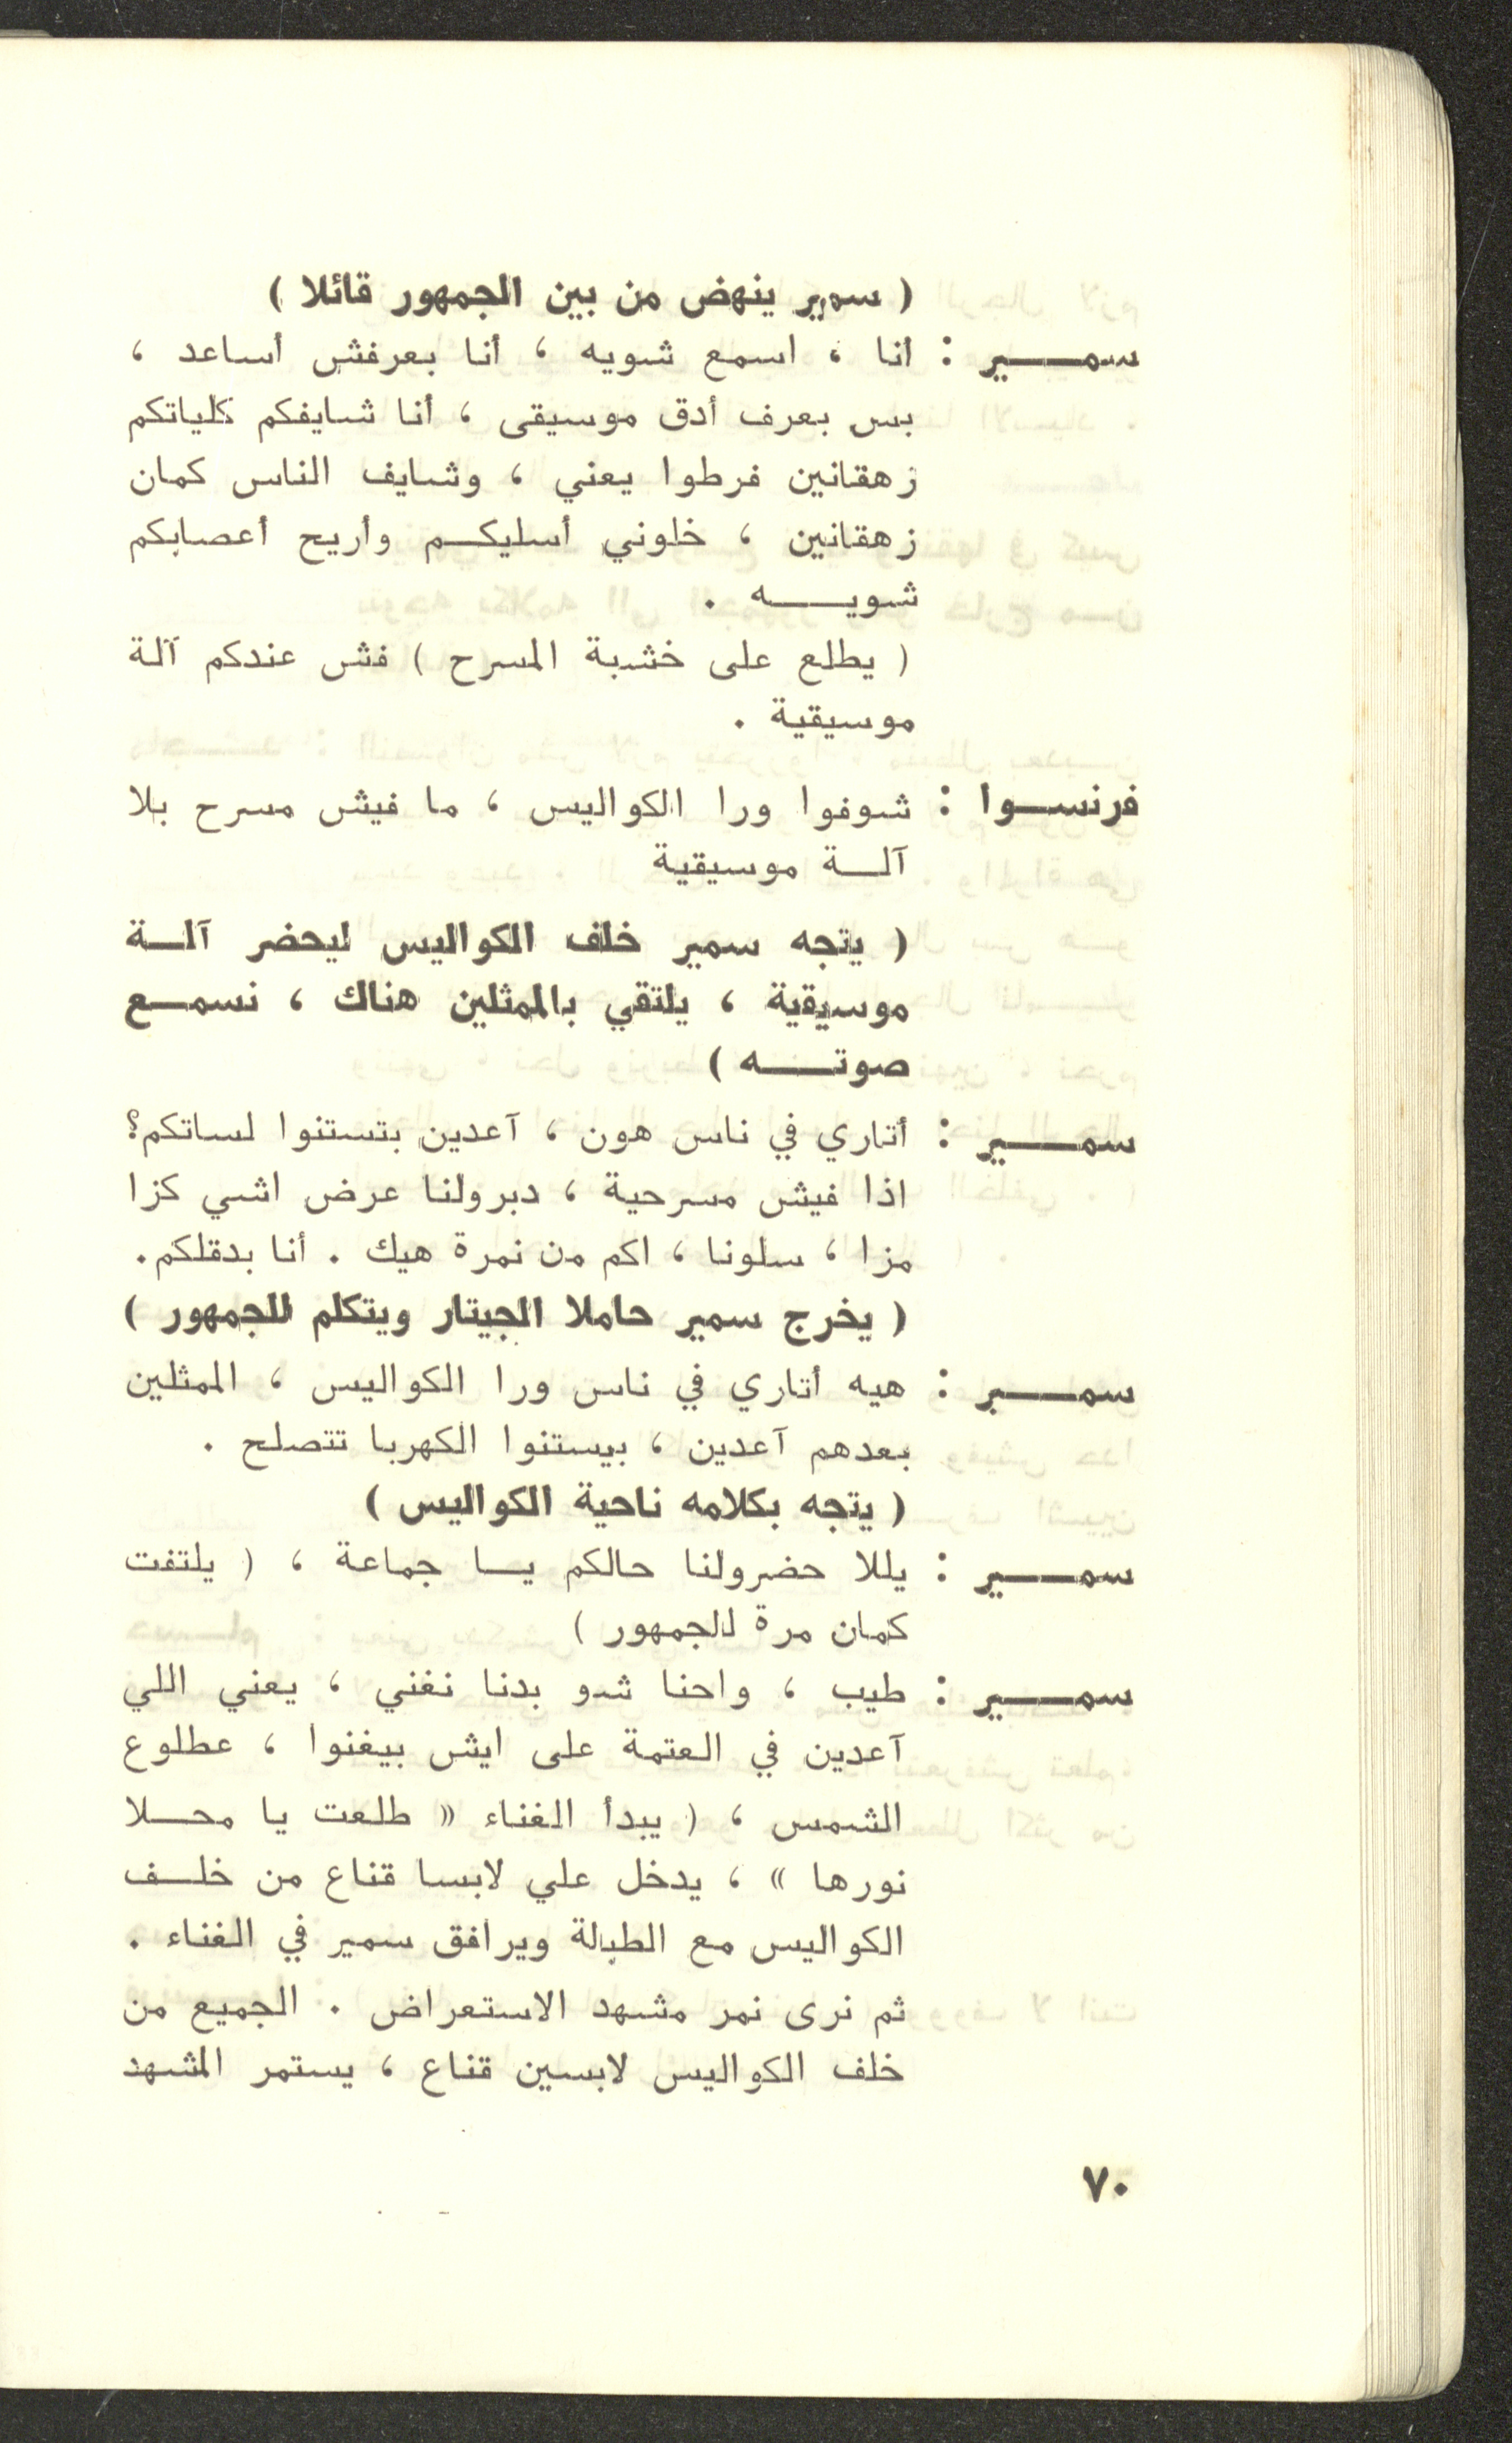 ( سمير ينهض من بين الجمهور قائلا )
سمـــير : أنا ، اسمع شويه ، أنا بعرفش أساعد ،
بس بعرف أدق موسيقى ، أنا شايفكم كلياتكم
زهقانين فرطوا يعني ، وشايف الناس كمان
زهقانين ، خلوني أسليكـم وأريح أعصابكم
شويــه .
( يطلع على خشبة المسرح ) فش عندكم آلة
موسيقية .
فرنسـوا : شوفوا ورا الكواليس ، ما فيش مسرح بلا
آلـة موسيقية
( يتجه سمير خلف الكواليس ليحضر آلـة
موسيقية ، يلتقي بالممثلين هناك ، نسمـع
صوتــه )
سمـــير : أتاري في ناس هون ، آعدين بتستنوا لساتكم؟
اذا فيش مسرحية ، دبرولنا عرض اشي كزا
مزا ، سلونا ، اكم من نمرة هيك . أنا بدقلكم.
( يخرج سمير حاملا الجيتار ويتكلم للجمهور )
سمـــير : هيه أتاري في ناس ورا الكواليس ، الممثلين
بعدهم آعدين ، بيستنوا الكهربا تتصلح .
( يتجه بكلامه ناحية الكواليس )
سمـــير : يللا حضرولنا حالكم يـا جماعة ، ( يلتفت
كمان مرة للجمهور )
سمـــير : طيب ، واحنا شو بدنا نغني ، يعني اللي
آعدين في العتمة على ايش بيغنوا ، عطلوع
الشمس ، ( يبدأ الغناء « طلعت يا محـلا
نورها » ، يدخل علي لابسا قناع من خلـف
الكواليس مع الطبلة ويرافق سمير في الغناء .
ثم نرى نمر مشهد الاستعراض . الجميع من
خلف الكواليس لابسين قناع ، يستمر المشهد
٧٠